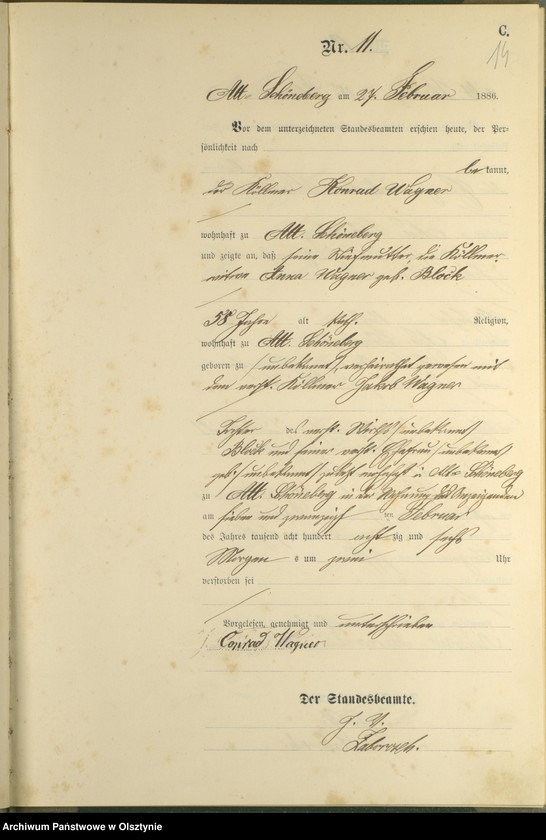 C.
Nr. 11.
14
Alt Schöneberg am 27. Februar 1886.
Vor dem unterzeichneten Standesbeamten erschien heute, der Per-
sönlichkeit nach
be kannt,
der Köllmer Konrad Wagner
wohnhaft zu Alt. Schöneberg
und zeigte an, daß seine Stiefmutter, die Köllmer-
wittwe Anna Wagner geb. Block
58 Jahre alt kath. Religion,
wohnhaft zu Alt. Schöneberg
geboren zu (unbekannt), verheirathet gewesen mit
dem verst. Köllmer Jakob Wagner
Tochter des verst. Wirths (unbekannt)
Block und seiner verst. Ehefrau (unbekannt)
geb. (unbekannt) zuletzt wohnhaft in Alt Schöneberg
zu Alt. Schöneberg in der Wohnung des Anzeigenden
am sieben und zwanzigsten Februar
des Jahres tausend acht hundert acht zig und sechs
Morgens um zwei Uhr
verstorben sei
Vorgelesen, genehmigt und unterschrieben
Conrad Wagner
Der Standesbeamte.
J. V.
Archiwum Państwowe w Olsztynie